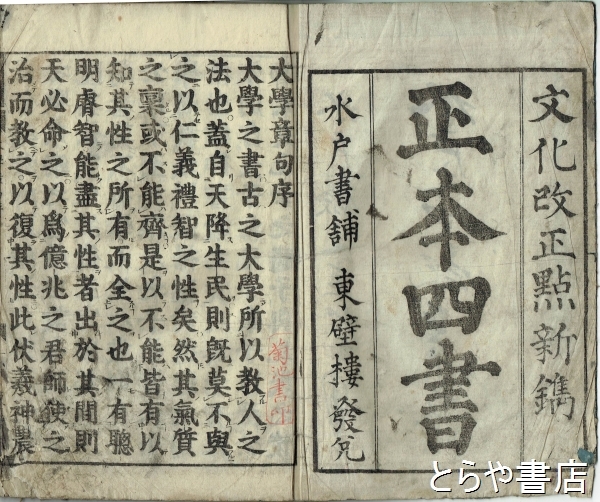 文化改正點新鐫
正本四書
水戶書舖 東壁樓發兌
大學章句序
大學之書古之大學所以教人之
法也蓋自天降生民則旣莫不與
之以仁義禮智之性矣然其氣質
之稟或不能齊是以不能皆有以
知其性之所有而全之也一有聰
明睿智能盡其性者出於其間則
天必命之以爲億兆之君師使之
治而教之以復其性此伏羲神農
とらや書店